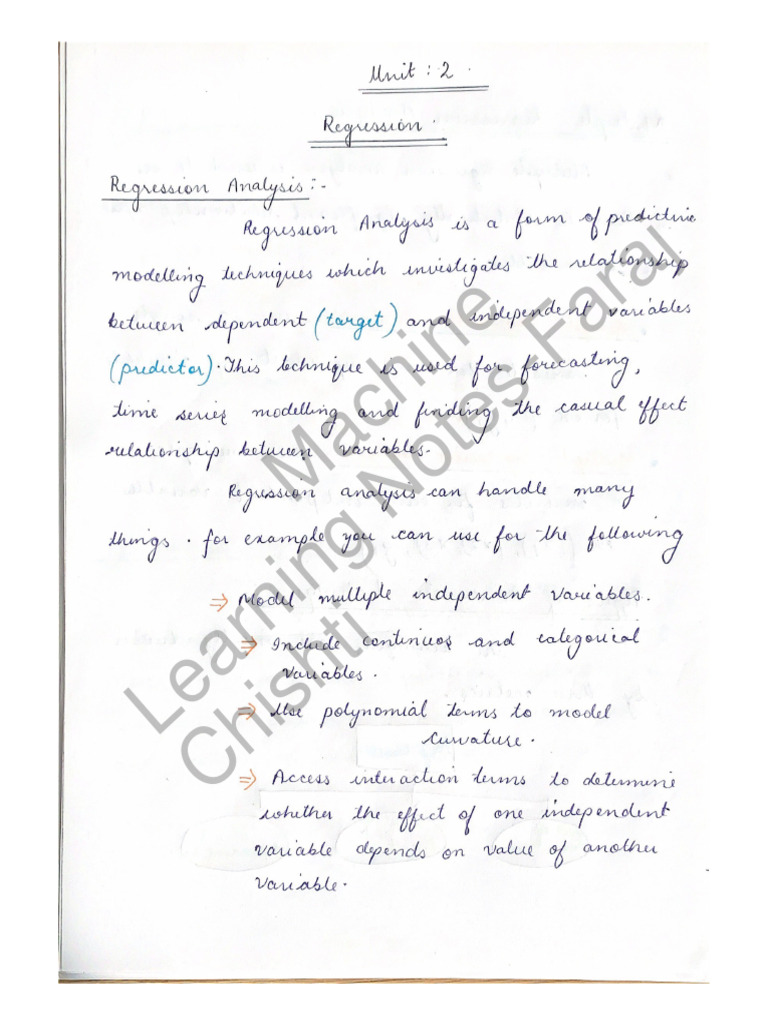 Unit : 2 .
Regression .
Regression Analysis :-
Regression Analysis is a form of predictive
modelling techniques which investigates the relationship
between dependent (target) and independent variables
(predictor). This technique is used for forecasting,
time series modelling and finding the casual effect
relationship between variables.
Regression analysis can handle many
things . for example you can use for the following
⇒ Model multiple independent variables.
⇒ Include continuos and categorical
variables .
⇒ Use polynomial terms to model
curvature .
⇒ Access interaction terms to determine
whether the effect of one independent
variable depends on value of another
variable .
Machine
Learning Notes-Faraj
Chishti